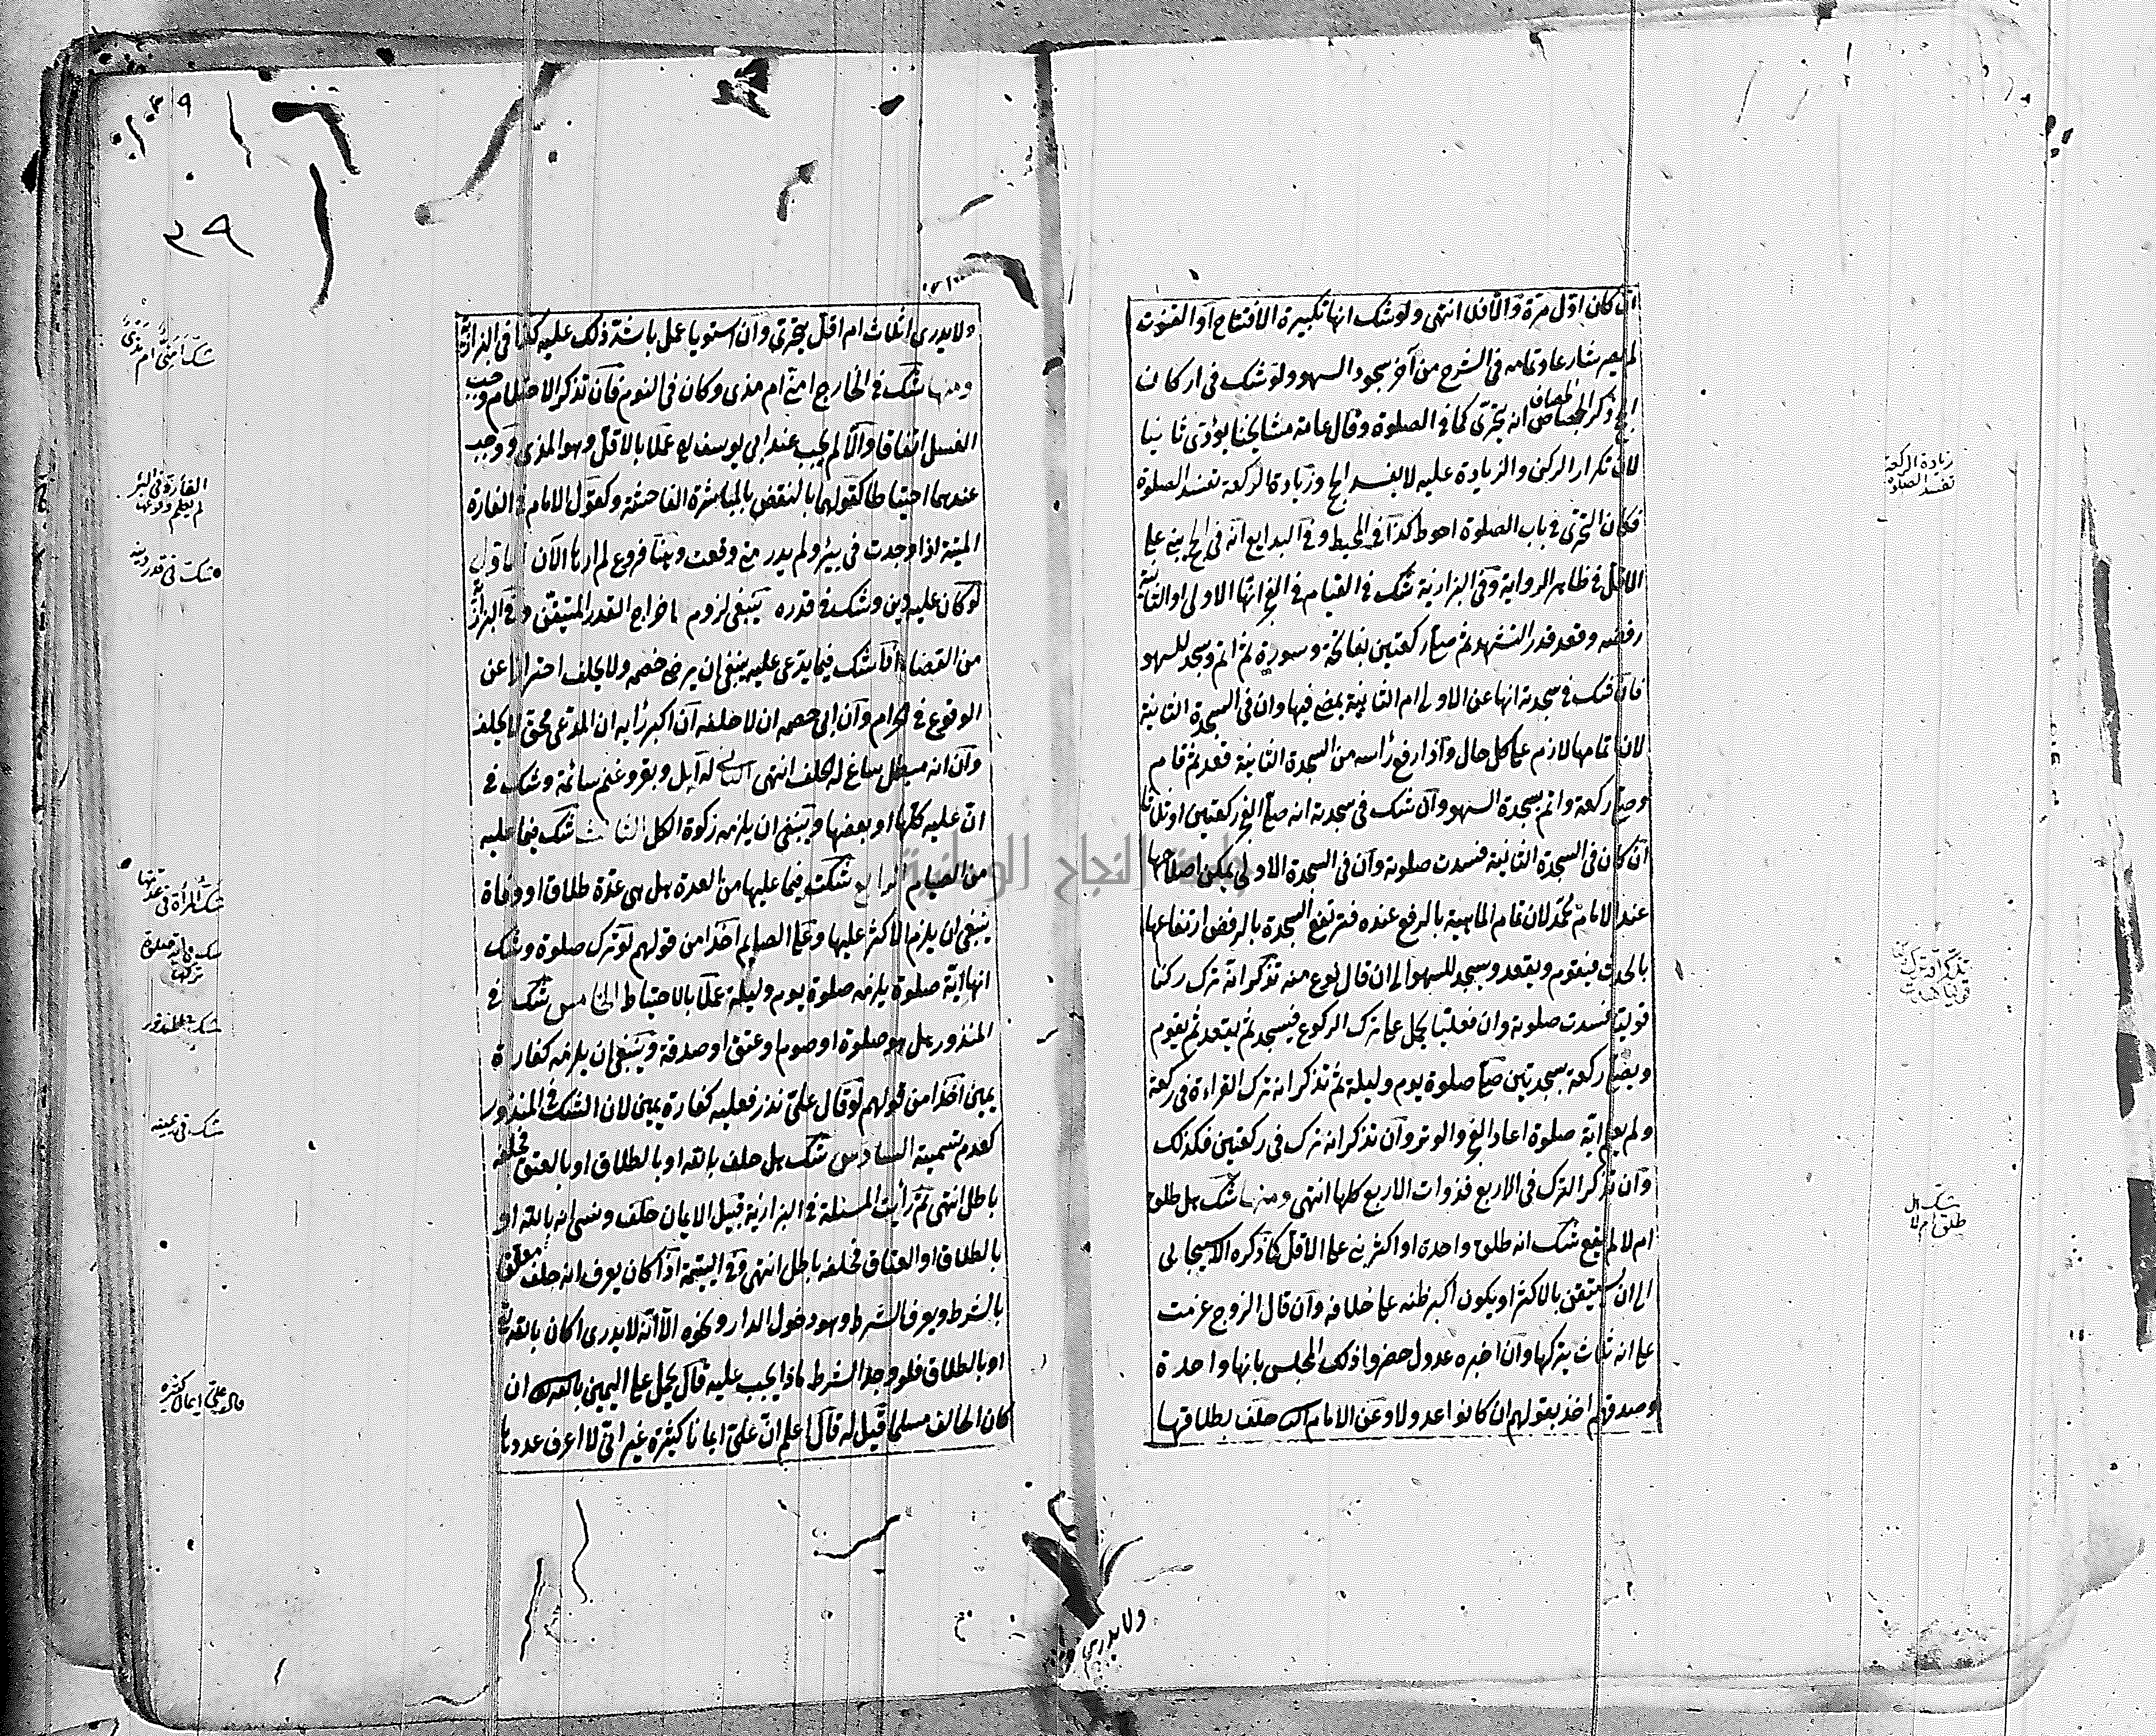 ان كان اول مرة والا فلا انتهى ولو شك انها تكبيرة الافتتاح او القنوت
لم يصر شارعا وتمامه فى الشرح من آخر سجود السهو ولو شك فى اركان
الحج ذكر الجصاص انه يتحرى كما فى الصلوة وقال عامة مشايخنا يؤدى ثانيا
لان تكرار الركن والزيادة عليه لا يفسد الحج وزيادة الركعة تفسد الصلوة
فكان التحرى فى باب الصلوة احوط كذا فى المحيط وفى البدايع انه فى الحج يبنى على
الاقل فى ظاهر الرواية وفى البزازية شك فى القيام فى الفجر انها الاولى او الثانية
رفضه وقعد قدر التشهد ثم صلى ركعتين بفاتحة وسورة ثم اتم وسجد للسهو
فان شك فى سجدته انها عن الاولى ام الثانية يمضى فيها وان فى السجدة الثانية
لان اتمامها لازم على كل حال واذا رفع رأسه من السجدة الثانية قعد ثم قام
وصلى ركعة واتم بسجدة السهو وان شك فى سجدته انه صلى الفجر ركعتين او ثلاثا
ان كان فى السجدة الثانية فسدت صلوته وان فى السجدة الاولى يمكن اصلاحها
عند الامام محمد لان تمام الماهية بالرفع عنده فترتفع السجدة بالرفض ارتفاعها
بالحدث فيقوم ويقعد ويسجد للسهو الى ان قال نوع منه تذكر انه ترك ركنا
قوليا فسدت صلوته وان فعليا يحمل على ترك الركوع فيسجد ثم يقعد ثم يقوم
ويصلى ركعة بسجدتين صلى صلوة يوم وليلة ثم تذكر انه ترك القراءة فى ركعة
ولم يعلم اية صلوة اعاد الفجر والوتر وان تذكر انه ترك فى ركعتين فكذلك
وان تذكر الترك فى الاربع فذوات الاربع كلها انتهى ومنها شك هل طلق
ام لا لم يقع شك انه طلق واحدة او اكثر بنى على الاقل كما ذكره الاسبيجابى
الى ان يستيقن بالاكثر او يكون اكبر ظنه على خلافه وان قال الزوج عزمت
على انه ثلاث يتركها وان اخبره عدول حضروا ذلك المجلس بانها واحدة
وصدقهم اخذ بقولهم ان كانوا عدولا وعن الامام الثانى حلف بطلاقها
زيادة الركعة
تفسد الصلوة
تذكر انه ترك ركنا
قوليا فسدت
شك هل
طلق ام لا
ولا يدرى
٣٩
٣٩
ولا يدرى اثلاث ام اقل يتحرى وان استويا عمل باشد ذلك عليه كذا فى البزازية
ومنها شك فى الخارج امنى ام مذى وكان فى النوم فان تذكر الاحتلام وجب
الغسل اتفاقا والا لم يجب عند ابى يوسف عملا بالاقل وهو المذى ووجب
عندهما احتياطا كقولهما بالنقض بالمباشرة الفاحشة وكقول الامام فى الفارة
الميتة اذا وجدت فى بئر ولم يدر متى وقعت وهنا فروع لم ارها الآن الاول
لو كان عليه دين وشك فى قدره ينبغى لزوم اخراج القدر المتيقن وفى البزازية
من القضاء اذا شك فيما يدعى عليه ينبغى ان يرضى خصمه ولا يحلف احترازا عن
الوقوع فى الحرام وان ابى خصمه ان لا حلفه ان اكبر رأيه ان المدعى محق لا يحلف
وان انه مبطل ساغ له الحلف انتهى الثانى له ابل وبقر وغنم سائمة وشك فى
ان عليه كلها او بعضها وينبغى ان يلزمه زكوة الكل الثالث شك فيما عليه
من الصيام الرابع شكت فيما عليها من العدة هل هى عدة طلاق او وفاة
ينبغى ان يلزم الاكثر عليها وعلى الصايم اخذا من قولهم لو ترك صلوة وشك
انها اية صلوة يلزمه صلوة يوم وليلة عملا بالاحتياط الخامس شك فى
المنذور هل هو صلوة او صوم او عتق او صدقة وينبغى ان يلزمه كفارة
يمين اخذا من قولهم لو قال على نذر فعليه كفارة يمين لان الشك فى المنذور
كعدم تسميته السادس شك هل حلف بالله او بالطلاق او بالعتق فحلفه
باطل انتهى ثم رأيت المسئلة فى البزازية قبيل الايمان حلف ونسى انه بالله او
بالطلاق او العتاق فحلفه باطل انتهى وفى اليتيمة اذا كان يعرف انه حلف معلقا
بالشرط ويعرف الشرط وهو دخول الدار ونحوه الا انه لا يدرى اكان بالله تع
او بالطلاق فلو وجد الشرط ماذا يجب عليه قال يحمل على اليمين بالله ان
كان الحالف مسلما قيل له قال اعلم ان على ايمانا كثيرة غير انى لا اعرف عددها
شك امنى ام مذى
الفارة فى البئر
لم يعلم وقوعها
شك فى قدر دينه
شك المرأة فى عدتها
شك فى اية صلوة
تركها
شك فى المنذور
شك فى يمينه
قال على ايمان كثيرة
جامعة النجاح الوطنية